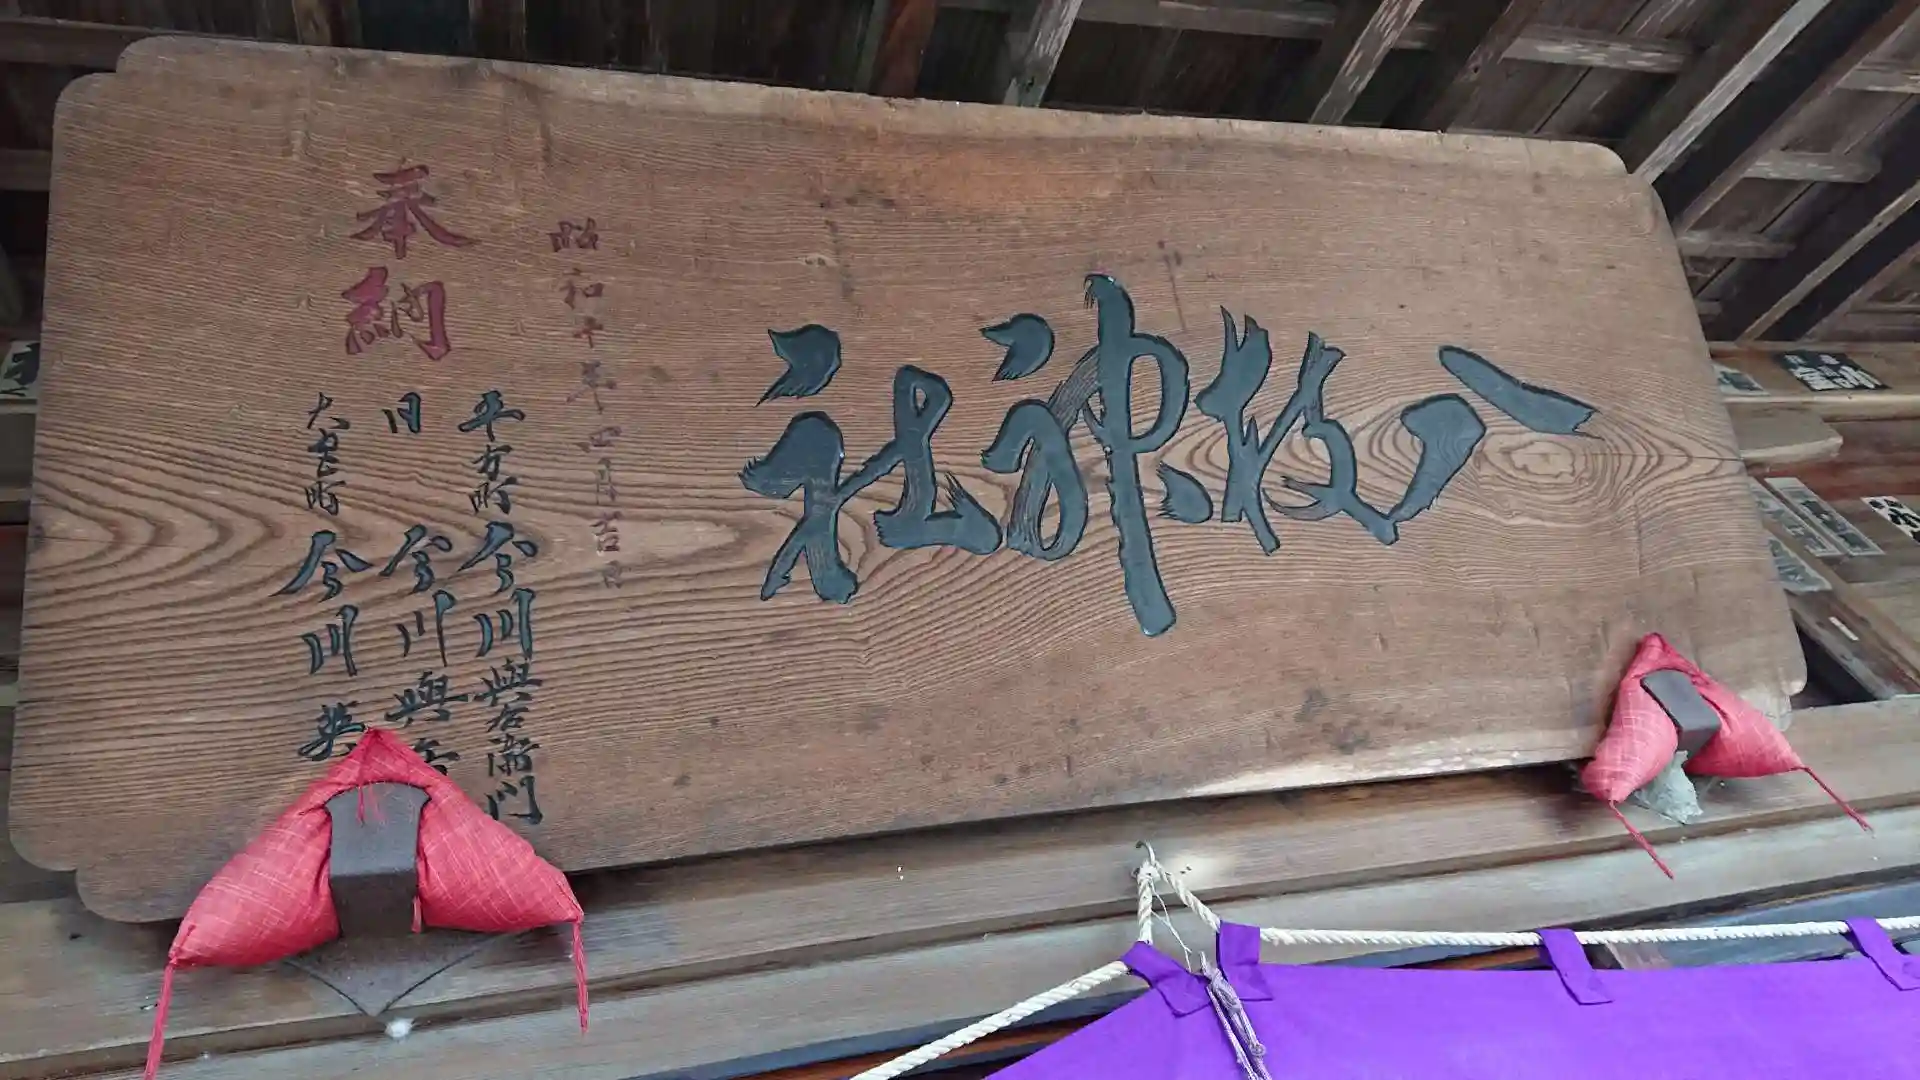 八枝神社
昭和十年四月吉日
奉納
平方町 今川與右衛門
同 今川與
大宮町 今川